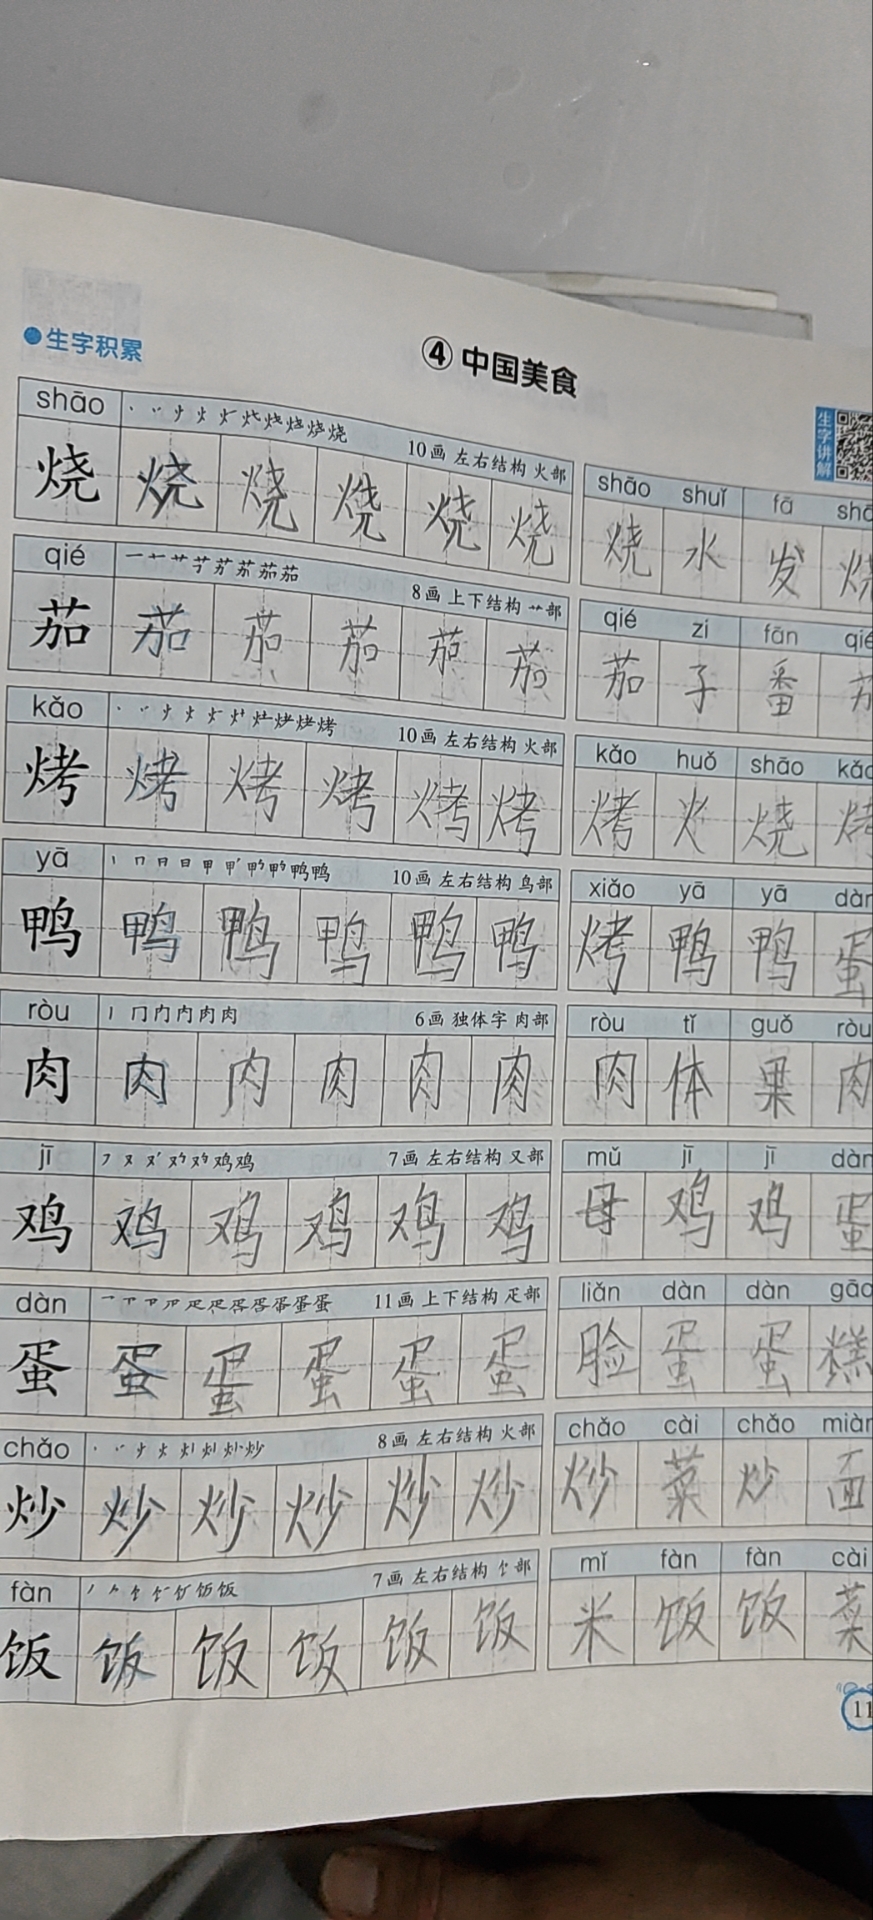 生字积累
④ 中国美食
生字讲解
shāo 10画 左右结构 火部
烧 烧 烧 烧 烧 烧
shāo shuǐ fā shāo
烧 水 发 烧
qié 8画 上下结构 艹部
茄 茄 茄 茄 茄 茄
qié zi fān qié
茄 子 番 茄
kǎo 10画 左右结构 火部
烤 烤 烤 烤 烤 烤
kǎo huǒ shāo kǎo
烤 火 烧 烤
yā 10画 左右结构 鸟部
鸭 鸭 鸭 鸭 鸭 鸭
xiǎo yā yā dàn
烤 鸭 鸭 蛋
ròu 6画 独体字 肉部
肉 肉 肉 肉 肉 肉
ròu tǐ guǒ ròu
肉 体 果 肉
jī 7画 左右结构 又部
鸡 鸡 鸡 鸡 鸡 鸡
mǔ jī jī dàn
母 鸡 鸡 蛋
dàn 11画 上下结构 疋部
蛋 蛋 蛋 蛋 蛋 蛋
liǎn dàn dàn gāo
脸 蛋 蛋 糕
chǎo 8画 左右结构 火部
炒 炒 炒 炒 炒 炒
chǎo cài chǎo miàn
炒 菜 炒 面
fàn 7画 左右结构 饣部
饭 饭 饭 饭 饭 饭
mǐ fàn fàn cài
米 饭 饭 菜
11